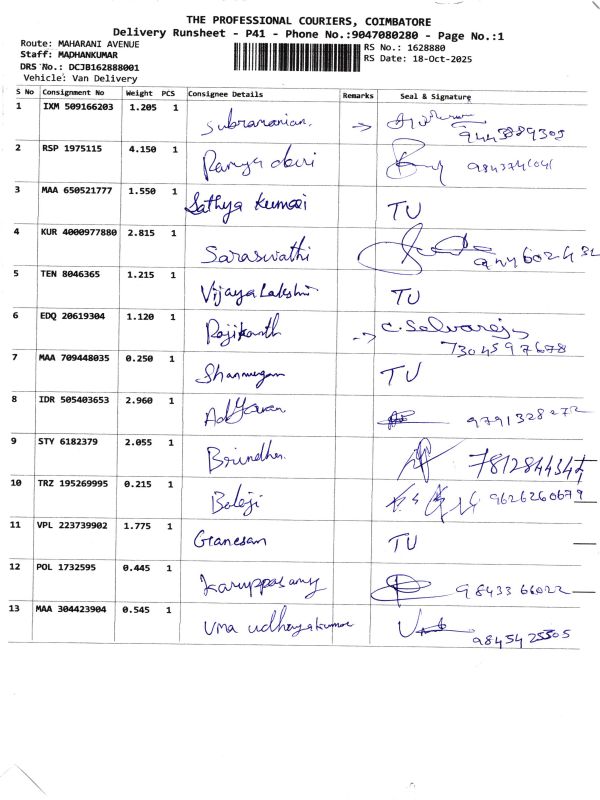 THE PROFESSIONAL COURIERS, COIMBATORE
Delivery Runsheet - P41 - Phone No.:9047080280 - Page No.:1
Route: MAHARANI AVENUE
Staff: MADHANKUMAR
DRS No.: DCJB162888001
Vehicle: Van Delivery
RS No.: 1628880
RS Date: 18-Oct-2025
S No Consignment No Weight PCS Consignee Details Remarks Seal & Signature
1 IXM 509166203 1.205 1 Subramanian. →
2 RSP 1975115 4.150 1 Ramya devi
3 MAA 650521777 1.550 1 Sathya Kumari TU
4 KUR 4000977880 2.815 1 Saraswathi
5 TEN 8046365 1.215 1 Vijaya Lakshmi TU
6 EDQ 20619304 1.120 1 Rajikanth → C. Selvaraj
7304597678
7 MAA 709448035 0.250 1 Shanmugam TU
8 IDR 505403653 2.960 1 9791328272
9 STY 6182379 2.055 1 Brindha
10 TRZ 195269995 0.215 1 Balaji 9626260679
11 VPL 223739902 1.775 1 Ganesan TU
12 POL 1732595 0.445 1 Karuppasamy 9843366022
13 MAA 304423904 0.545 1 Uma udhayakumar
9845425505